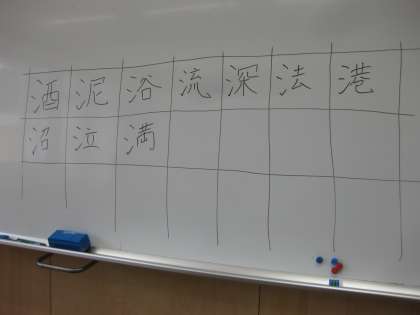 酒 泥 浴 流 深 法 港
沼 泣 満